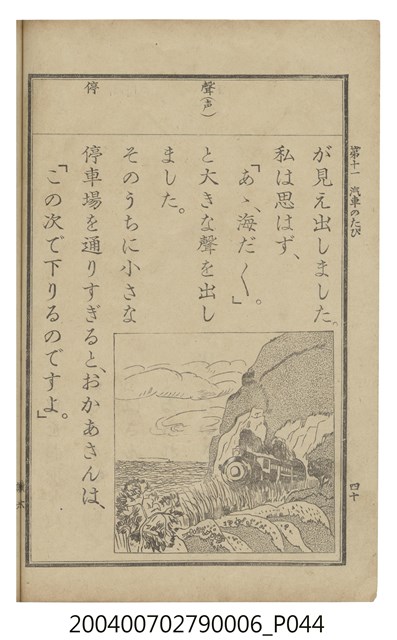 第十一 汽車のたび
四十
聲(声)
停
が見え出しました。
私は思はず、
「あゝ、海だ〳〵。」
と大きな聲を出し
ました。
そのうちに小さな
停車場を通りすぎると、おかあさんは、
「この次で下りるのですよ。」
200400702790006_P044